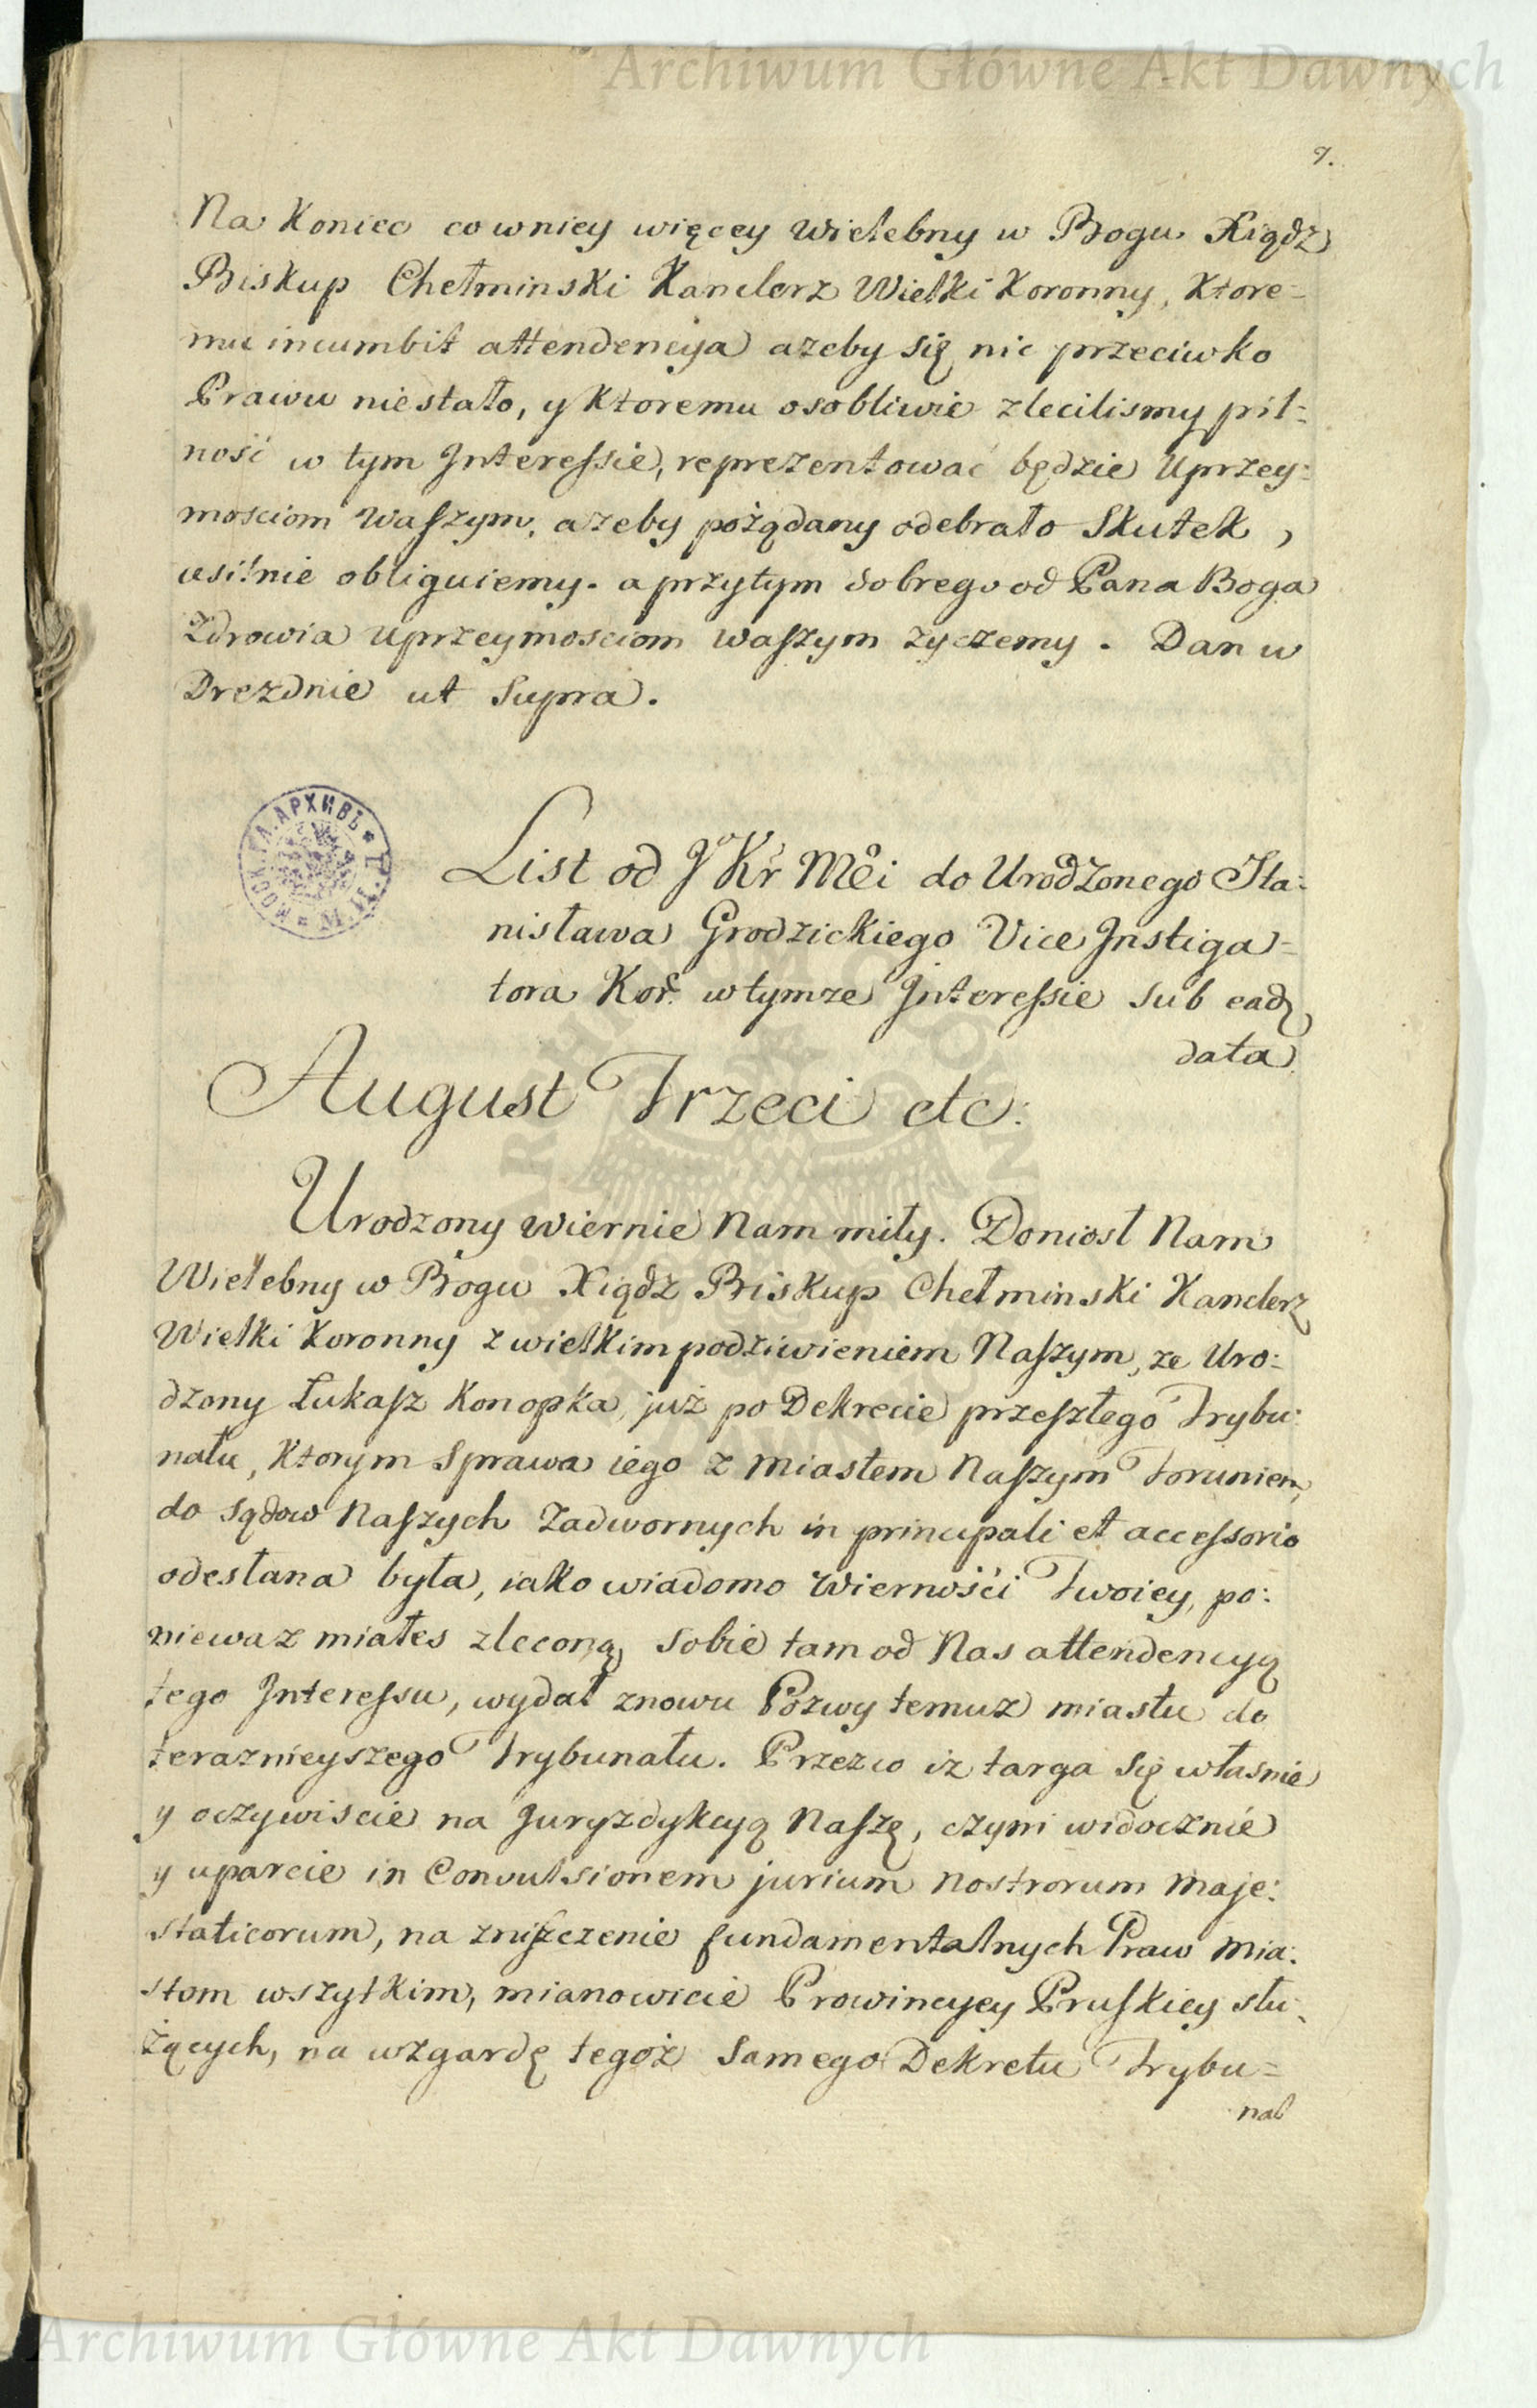 Archiwum Główne Akt Dawnych
9.
Na Koniec co wniey więcey Wielebny w Bogu Xiądz
Biskup Chełminski Kanclerz Wielki Koronny, Ktore-
mu incumbit attendencya azeby się nic przeciwko
Prawu niestało, y Ktoremu osobliwie zlecilismy pil-
ność w tym Interessie, reprezentować będzie Uprzey-
mosciom Waszym, azeby pożądany odebrało Skutek,
usilnie obliguiemy. a przytym dobrego od Pana Boga
Zdrowia Uprzeymosciom Waszym życzemy. Dan w
Dreznie ut Supra.
МОСК. ГЛ. АРХИВЪ
List od Jº Kr Mci do Urodzonego Sta-
nisława Grodzickiego Vice Instiga-
tora Kor. w tymze Interessie sub ead
data
August Trzeci etc:
Urodzony wiernie Nam miły. Doniosł Nam
Wielebny w Bogu Xiądz Biskup Chełminski Kanclerz
Wielki Koronny z wielkim podziwieniem Naszym, ze Uro-
dzony Łukasz Konopka, już po Dekrecie przeszłego Trybu-
nału, Ktorym Sprawa iego z Miastem Naszym Toruniem,
do Sądow Naszych Zadwornych in principali et accessorio
odesłana była, iako wiadomo Wierności Twoiey, po-
niewaz miałes zleconą Sobie tam od Nas attendencyą
tego Interessu, wydał znowu Pozwy temuz miastu do
teraznieyszego Trybunału. Przezco iz targa się własnie
y oczywiscie na Juryzdykcyą Naszę, czyni widocznie
y uparcie in Convulsionem jurium nostrorum Maje-
staticorum, na zniszczenie fundamentalnych Praw Mia-
stom wszytkim, mianowicie Prowincyey Pruskiey słu-
żących, na wzgardę tegoż Samego Dekretu Trybu-
nal
Archiwum Główne Akt Dawnych